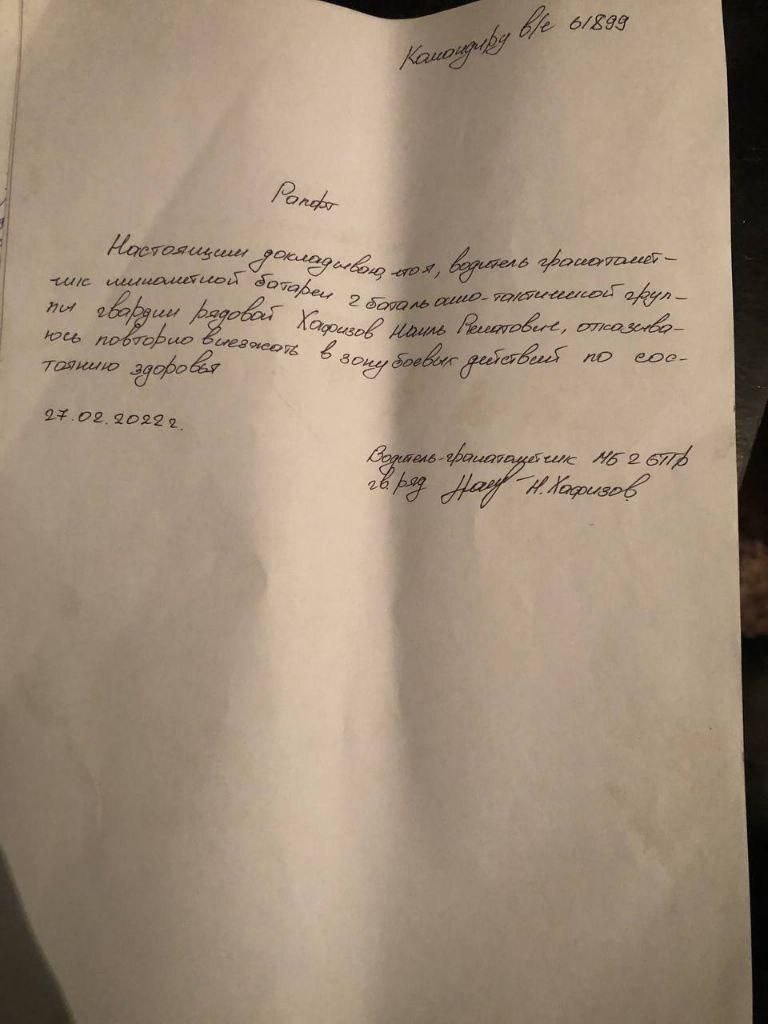 Командиру в/ч 61899
Рапорт
Настоящим докладываю, что я, водитель гранатомёт-
чик миномётной батареи 2 батальонно-тактической груп-
пы гвардии рядовой Хафизов Наиль Ренатович, отказыва-
юсь повторно выезжать в зону боевых действий по сос-
тоянию здоровья
27.02.2022г.
Водитель-гранатомётчик МБ 2 БТГр
гв. ряд Н. Хафизов